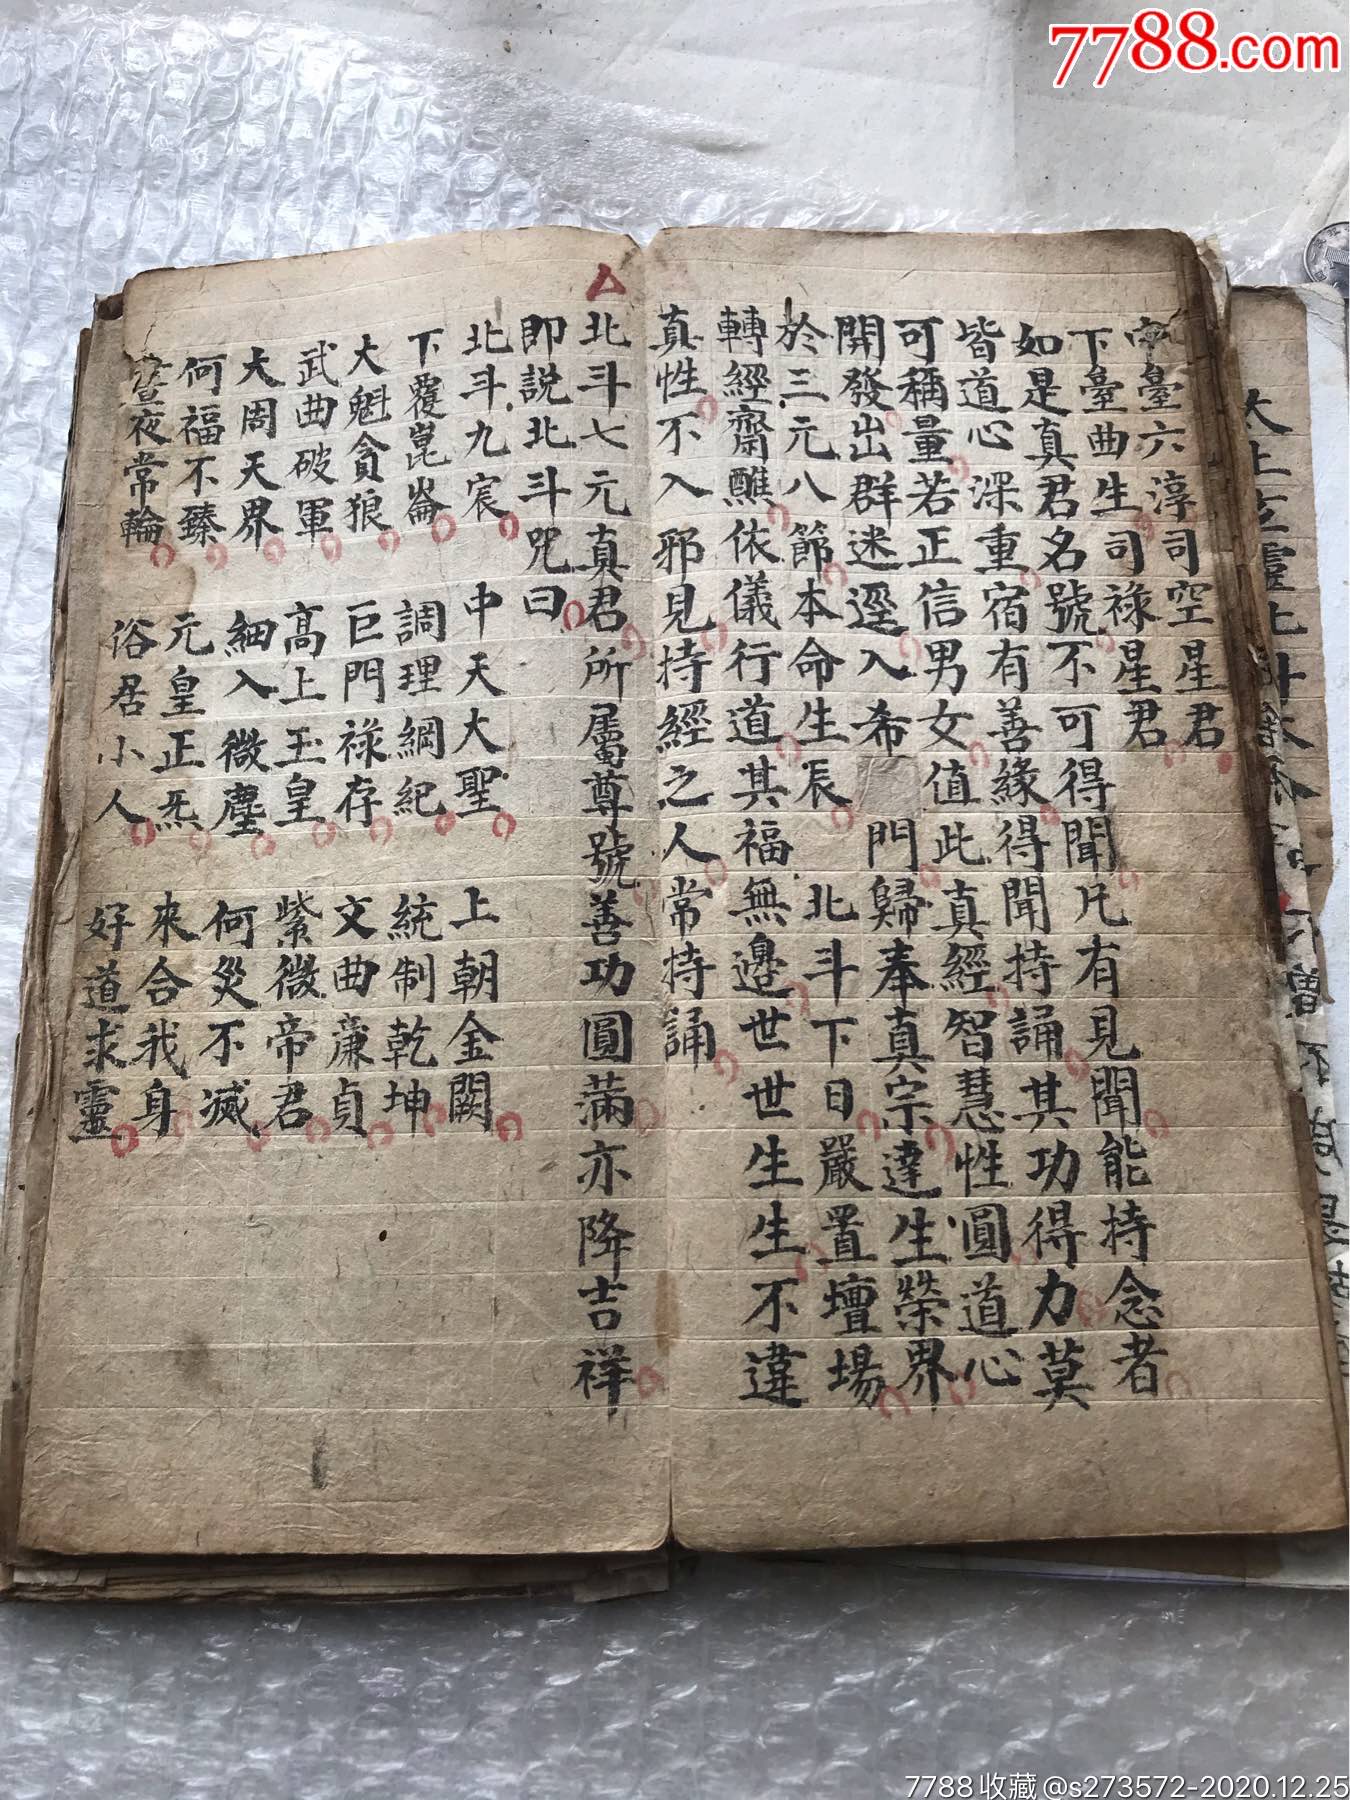 7788.com
中臺六淳司空星君
下臺曲生司祿星君
如是真君名號不可得聞凡有見聞能持念者
皆道心深重宿有善緣得聞持誦其功得力莫
可稱量若正信男女值此真經智慧性圓道心
開發出群迷逕入希門歸奉真宗達生榮界
於三元八節本命生辰北斗下日嚴置壇場
轉經齋醮依儀行道其福無邊世世生生不違
真性不入邪見持經之人常持誦
北斗七元真君所屬尊號善功圓滿亦降吉祥
即説北斗咒曰
北斗九宸 中天大聖 上朝金闕
下覆崑崙 調理綱紀 統制乾坤
大魁貪狼 巨門祿存 文曲廉貞
武曲破軍 高上玉皇 紫微帝君
大周天界 細入微塵 何災不滅
何福不臻 元皇正炁 來合我身
夜常輪 俗居小人 好道求靈
太上玄靈北斗本命
7788收藏@s273572-2020.12.25